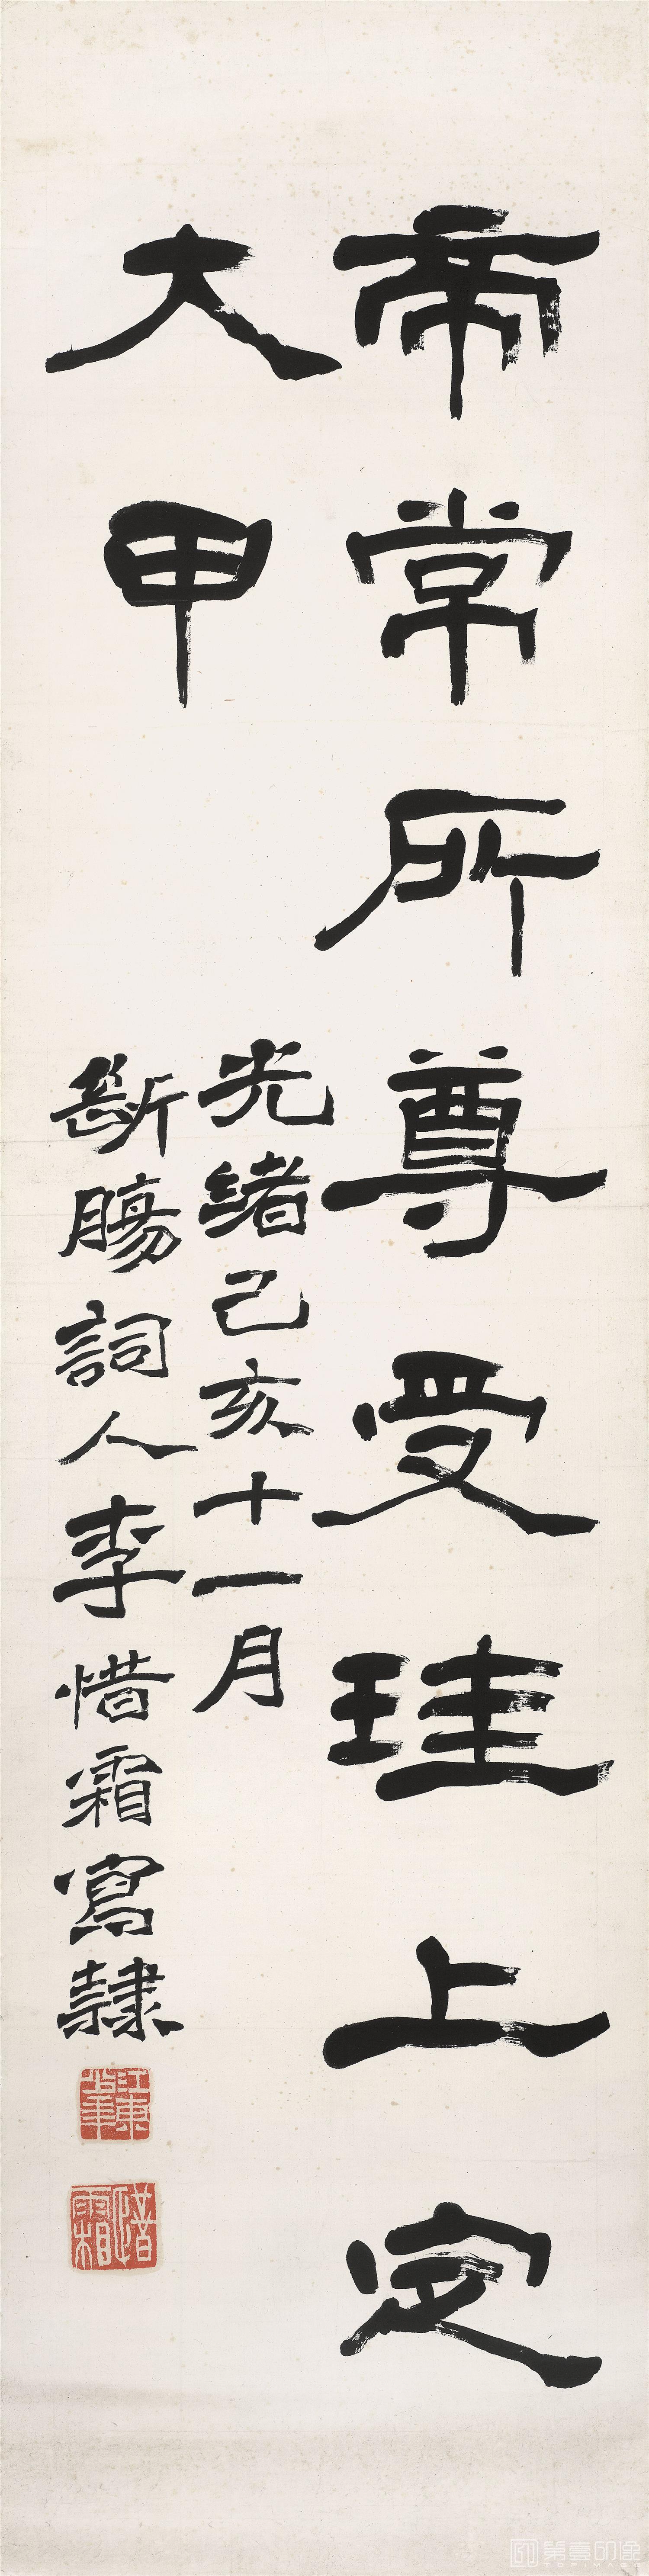 帝常所尊受珪上定
大甲
光緒己亥十一月
斷腸詞人李惜霜寫隸
江東
惜霜